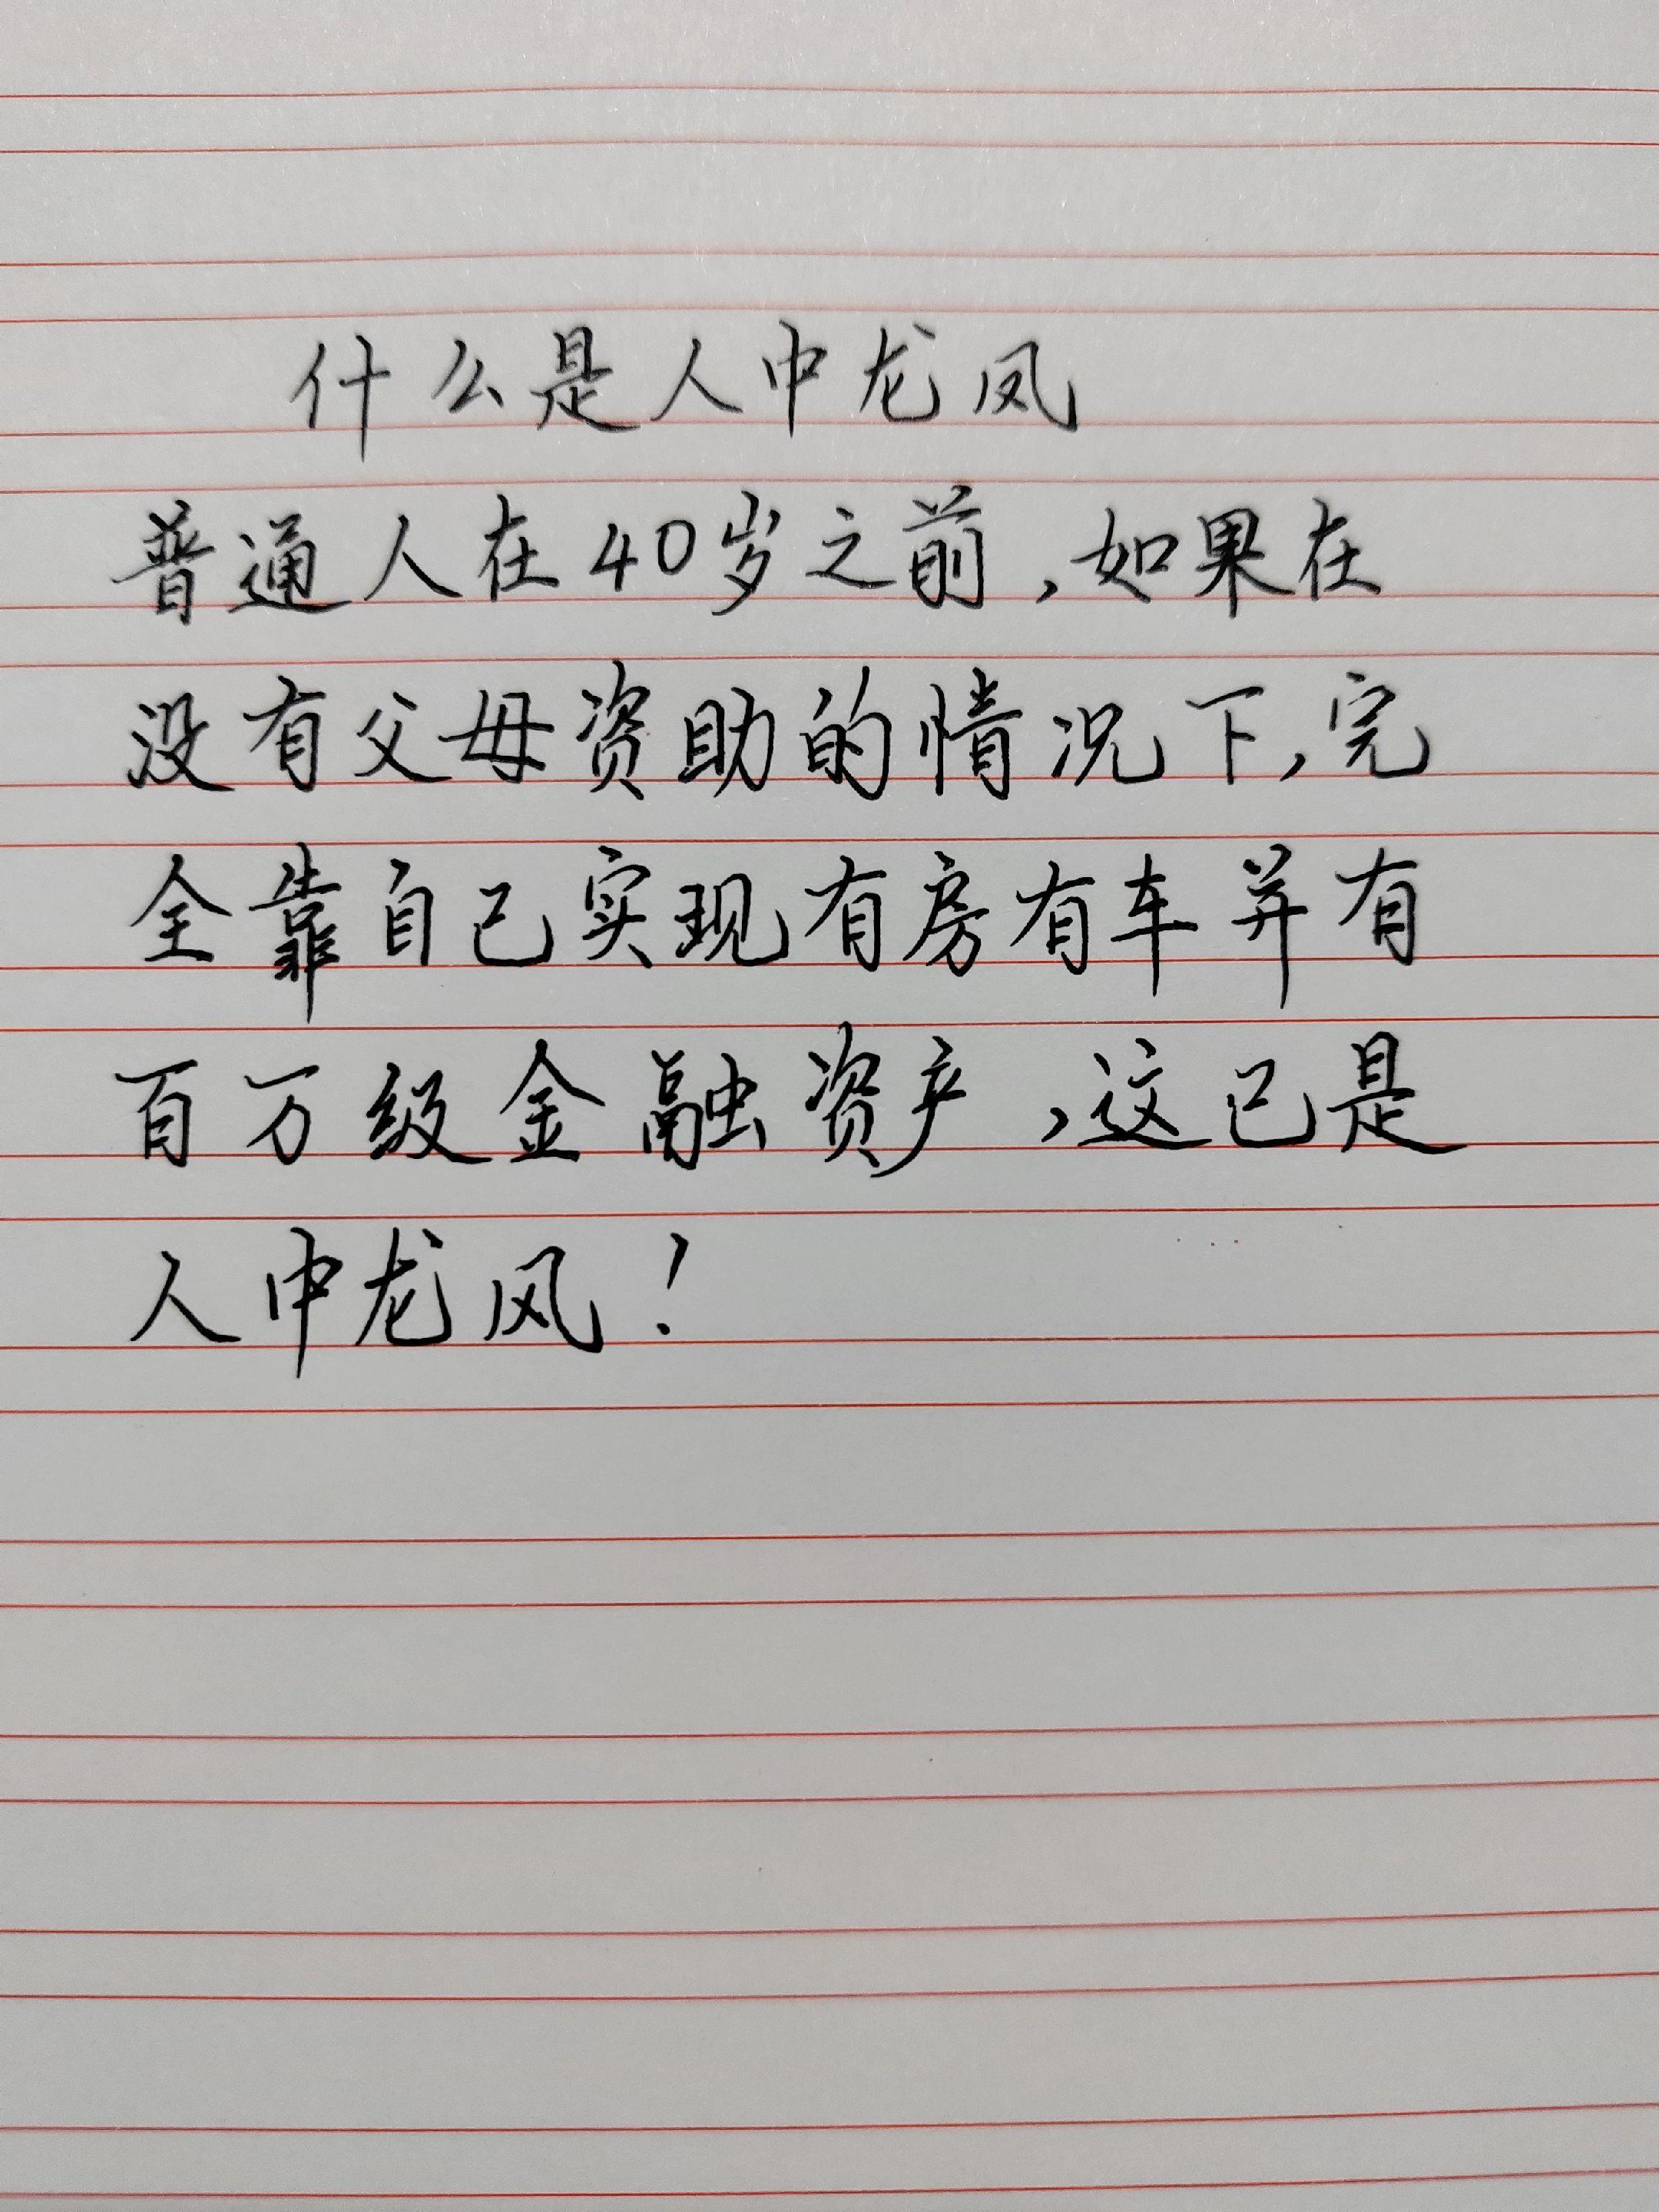 什么是人中龙凤
普通人在40岁之前,如果在
没有父母资助的情况下,完
全靠自己实现有房有车并有
百万级金融资产,这已是
人中龙风!